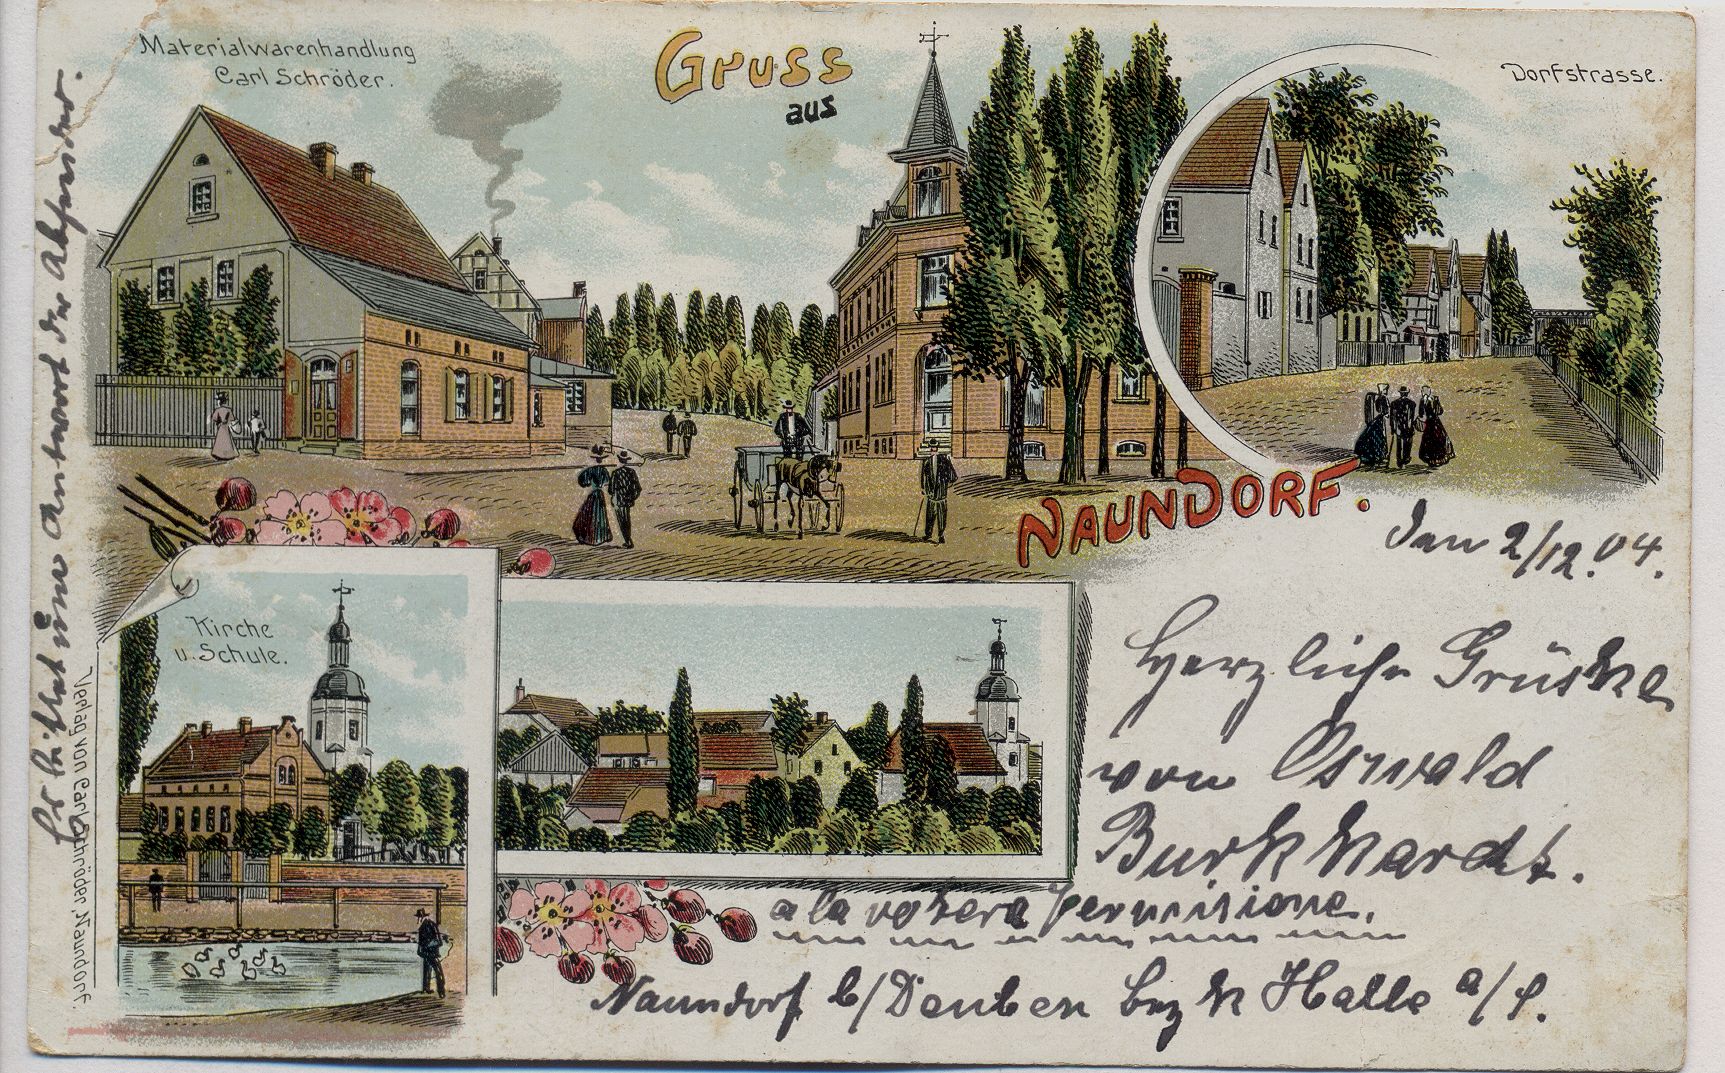 Materialwarenhandlung
Carl Schröder.
Gruss
aus
NAUNDORF.
Dorfstrasse.
den 2/12. 04.
Herzliche Grüske
von Oswald
Burkhardt.
a la vostera permisione.
Naundorf b/Deuben Bezk Halle a/S.
Kirche
u. Schule.
Verlag von Carl Schröder, Naundorf.
Es bittet um Antwort der Absender.